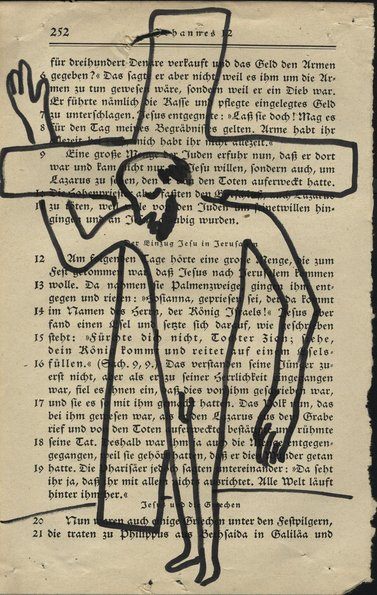 252 Johannes 12
für dreihundert Denare verkauft und das Geld den Armen
6 gegeben?« Das sagte er aber nicht weil es ihm um die Ar-
men zu tun gewesen wäre, sondern weil er ein Dieb war.
Er führte nämlich die Kasse und pflegte eingelegtes Geld
7 zu unterschlagen. Jesus entgegnete: »Laß sie doch! Mag es
8 für den Tag meines Begräbnisses gelten. Arme habt ihr
allezeit bei euch, mich habt ihr nicht allezeit.«
9 Eine große Menge Juden erfuhr nun, daß er dort
war und kam nicht nur um Jesu willen, sondern auch, um
Lazarus zu sehen, den er von den Toten auferweckt hatte.
10 Die Hohenpriester faßten den auch Lazarus
zu töten, weil viele von den Juden um seinetwillen hin-
gingen und an Jesus gläubig wurden.
Der Einzug Jesu in Jerusalem
12 Am folgenden Tage hörte eine große Menge, die zum
Fest gekommen war, daß Jesus nach Jerusalem kommen
13 wolle. Da nahmen sie Palmenzweige, gingen ihm ent-
gegen und riefen: »Hosianna, gepriesen sei, der da kommt
14 im Namen des Herrn, der König Israels!« Jesus aber
fand einen Esel und setzte sich darauf, wie geschrieben
15 steht: »Fürchte dich nicht, Tochter Zion; siehe,
dein König kommt und reitet auf einem Esels-
16 füllen.« (Sach. 9, 9.) Das verstanden seine Jünger zu-
erst nicht, aber als er zu seiner Herrlichkeit eingegangen
war, fiel es ihnen ein, daß dies von ihm geschrieben war,
17 und sie es mit ihm gemacht hatten. Das Volk nun, das
bei ihm gewesen war, als er den Lazarus aus dem Grabe
rief und von den Toten auferweckte, bestätigte und rühmte
18 seine Tat. Deshalb war ihm ja auch die Menge entgegen-
gegangen, weil sie gehört hatten, daß er dies Wunder getan
19 hatte. Die Pharisäer jedoch sagten untereinander: »Da seht
ihr ja, daß ihr mit allem nichts ausrichtet. Alle Welt läuft
hinter ihm her.«
Jesus und die Griechen
20 Nun waren auch einige Griechen unter den Festpilgern,
21 die traten zu Philippus aus Bethsaida in Galiläa und